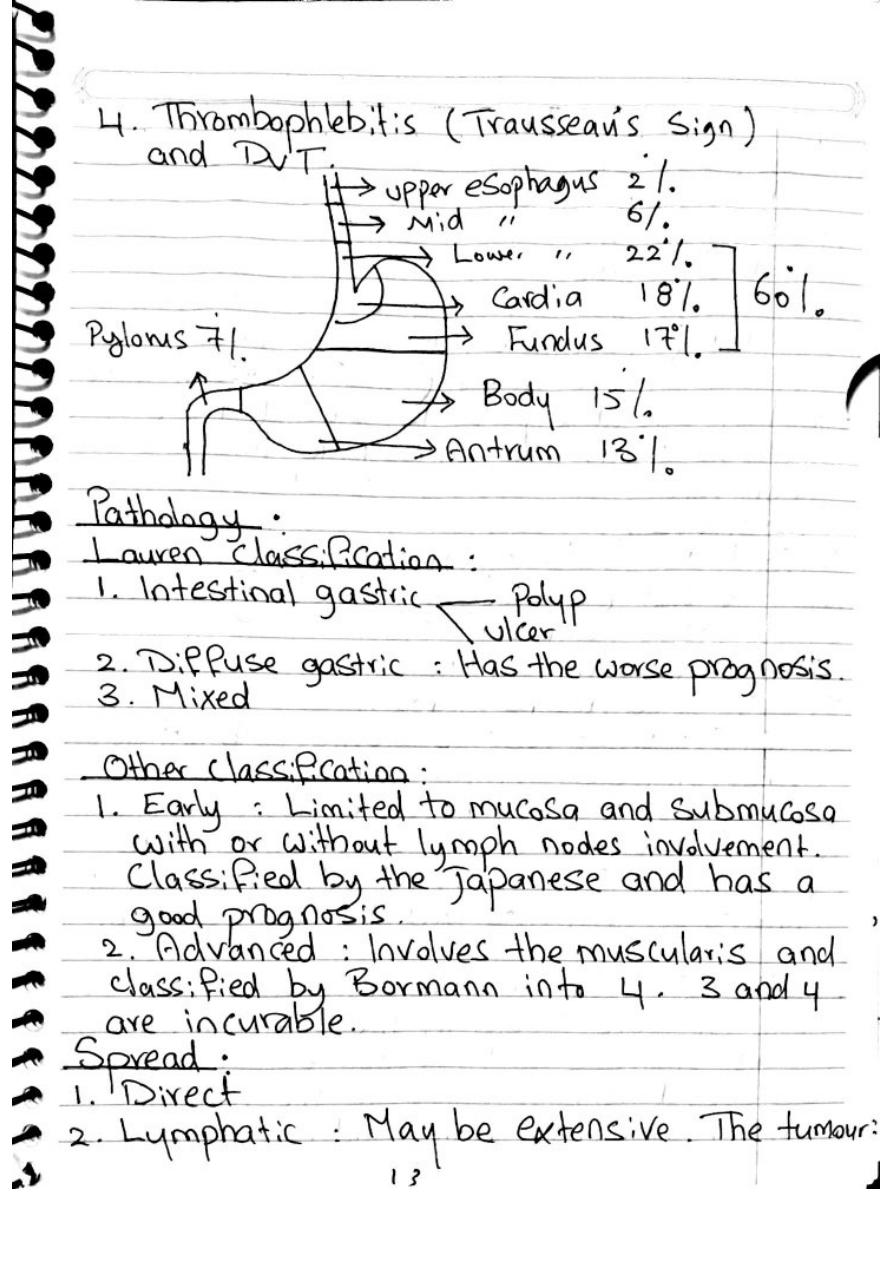 4. Thrombophlebitis (Trausseau's Sign)
and DVT.
upper esophagus 2%.
Mid " 6%.
Lower " 22%.
Cardia 18%.
60%.
Fundus 17%.
Pylorus 7%.
Body 15%.
Antrum 13%.
Pathology.
Lauren classification :
1. Intestinal gastric Polyp
ulcer
2. Diffuse gastric : Has the worse prognosis.
3. Mixed
Other classification :
1. Early : Limited to mucosa and submucosa
with or without lymph nodes involvement.
Classified by the Japanese and has a
good prognosis.
2. Advanced : Involves the muscularis and
classified by Bormann into 4. 3 and 4
are incurable.
Spread :
1. Direct
2. Lymphatic : May be extensive. The tumour:
13